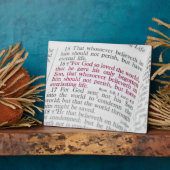 15 That whosoever believeth in
him should not perish, but have
eternal life.
16 For God so loved the world,
that he gave his only begotten
Son, that whosoever believeth in
him should not perish, but have
everlasting life.
17 For God sent not his Son
into the world to condemn the
world; but that the world through
him might be saved.
that believeth on him
condemned: but he